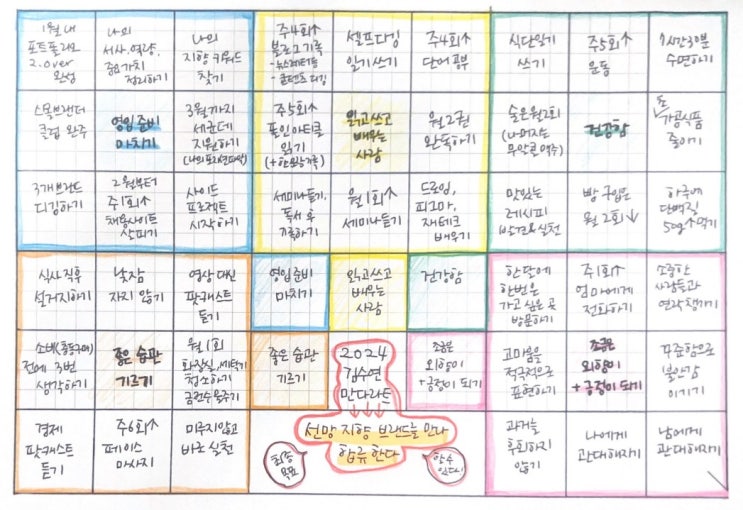 1월 내
포트폴리오
2.0ver
완성
나의
서사, 역량,
중요가치
정리하기
나의
지향 키워드
찾기
스몰브랜더
클럽 완주
영입 준비
마치기
3월까지
세 군데
지원하기
3개 브랜드
디깅하기
2월부터
주1회↑
채용사이트
살피기
사이드
프로젝트
시작하기
주4회↑
블로그 기록
- 뉴스레터 등
- 콘텐츠 디깅
셀프디깅
일기쓰기
주4회↑
단어 공부
주5회↑
롱인아티클
읽기
읽고 쓰고
배우는
사람
월 2권
완독하기
세미나 듣기,
독서 후
기록하기
월 1회↑
세미나 듣기
드로잉,
피그마,
재테크
배우기
식단일기
쓰기
주5회↑
운동
7시간 30분
수면하기
술은 월 2회
(나머지는
무알콜 맥주)
건강함
가공식품
줄이기
맛있는
레시피
발견&실천
빵 구입은
월 2회↓
하루에
단백질
50g↑ 먹기
식사 직후
설거지하기
낮잠
자지 않기
영상 대신
팟캐스트
듣기
소비(충동구매)
전에 3번
생각하기
좋은 습관
기르기
월 1회
화장실, 세탁기
청소하기
경제
팟캐스트
듣기
주6회↑
페이스
마사지
미루지 않고
바로 실천
영입 준비
마치기
읽고 쓰고
배우는
사람
건강함
좋은 습관
기르기
2024
김수연
만다라트
조금은
외향이
+ 긍정이 되기
선망 지향 브랜드를 만나
합류한다
최종
목표
할 수
있다!
한 달에
한 번은
가고 싶은 곳
방문하기
주1회↑
엄마에게
전화하기
소중한
사람들과
연락 챙기기
고마움을
적극적으로
표현하기
조금은
외향이
+ 긍정이 되기
꾸준함으로
불안감
이기기
과거를
후회하지
않기
나에게
관대해지기
남에게
관대해지기